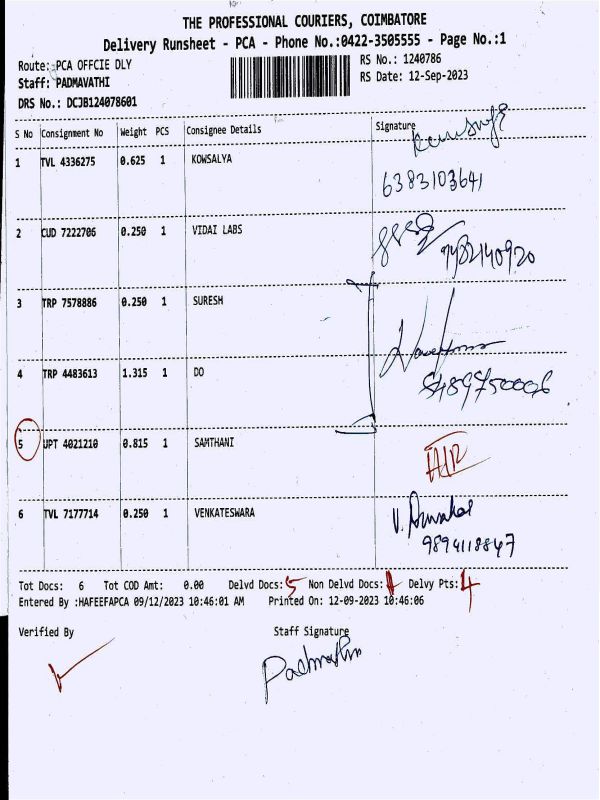 THE PROFESSIONAL COURIERS, COIMBATORE
Delivery Runsheet - PCA - Phone No.:0422-3505555 - Page No.:1
Route: PCA OFFCIE DLY RS No.: 1240786
Staff: PADMAVATHI RS Date: 12-Sep-2023
DRS No.: DCJB124078601
S No Consignment No Weight PCS Consignee Details Signature
1 TVL 4336275 0.625 1 KOWSALYA
6383103641
2 CUD 7222706 0.250 1 VIDAI LABS
7482140920
3 TRP 7578886 0.250 1 SURESH
4 TRP 4483613 1.315 1 DO
8489750006
5 UPT 4021210 0.815 1 SAMTHANI
6 TVL 7177714 0.250 1 VENKATESWARA V.
9894118847
Tot Docs: 6 Tot COD Amt: 0.00 Delvd Docs: 5 Non Delvd Docs: 1 Delvy Pts: 4
Entered By :HAFEEFAPCA 09/12/2023 10:46:01 AM Printed On: 12-09-2023 10:46:06
Verified By Staff Signature